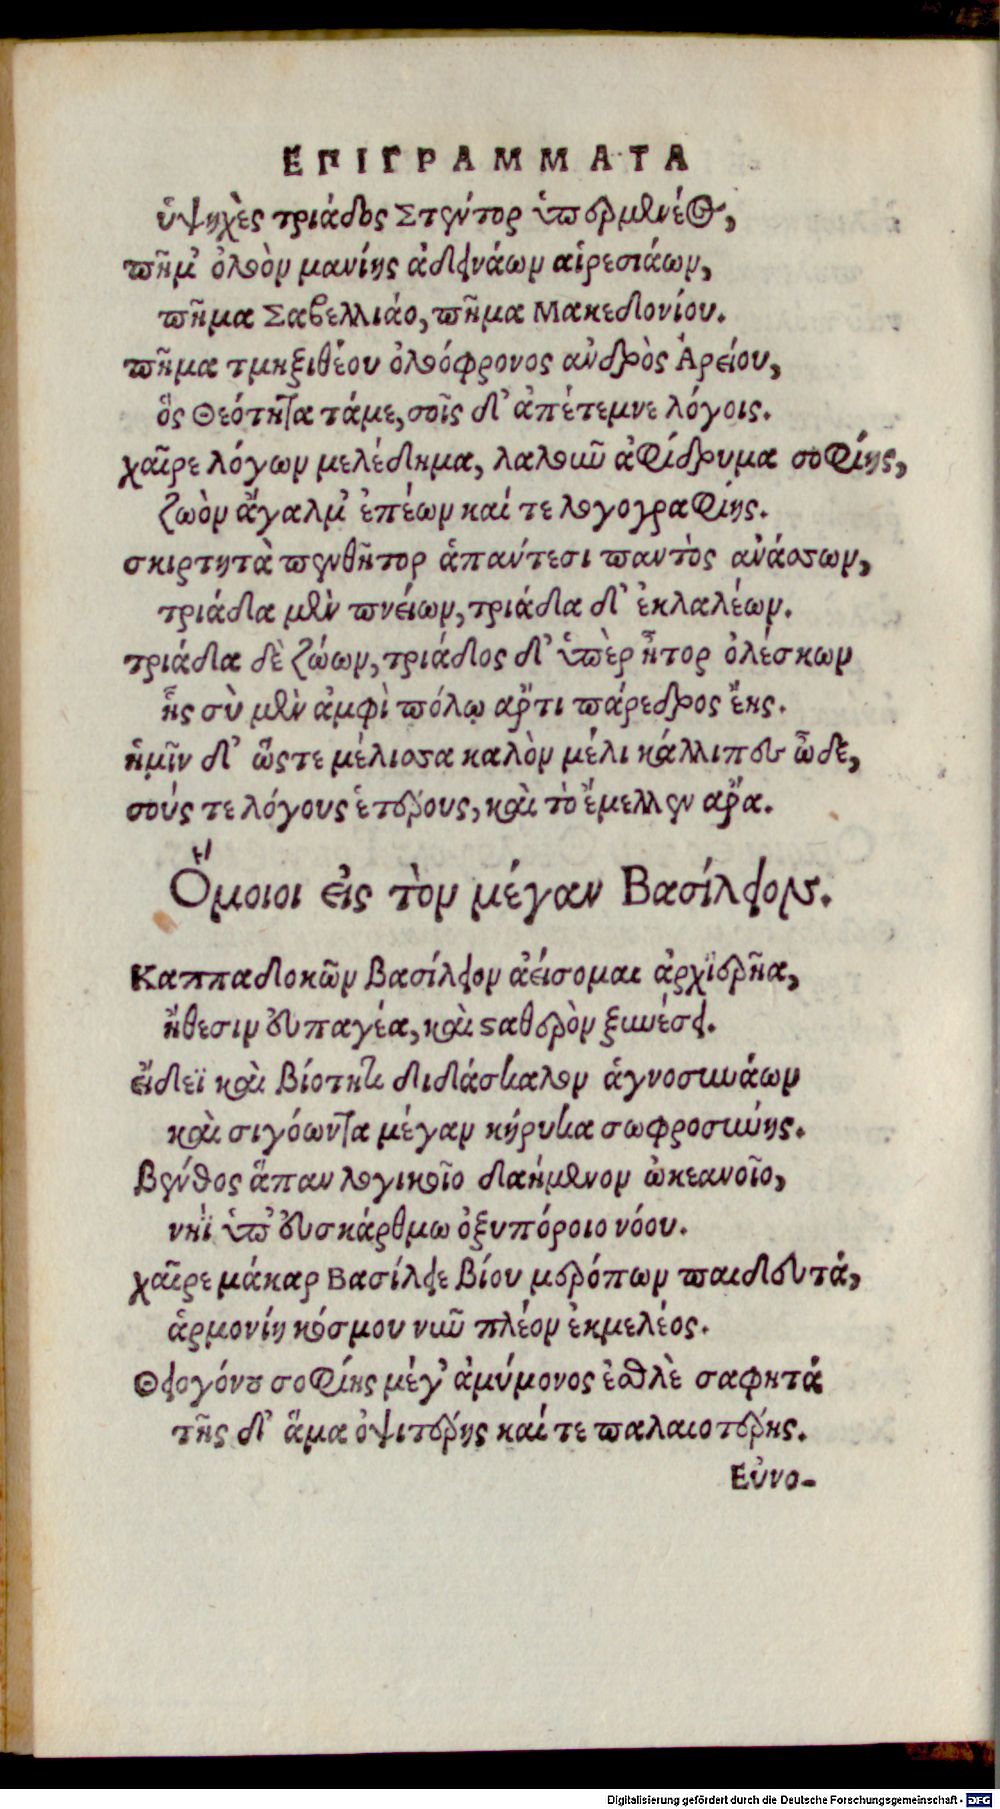 ΕΠΙΓΡΑΜΜΑΤΑ
ὑψηχὲς τριάδος Στέντορ ὑπερμενέος,
πῆμ' ὀλοὸν μανίης ἀδεινάων αἱρεσιάων,
πῆμα Σαβελλιάο, πῆμα Μακεδονίου.
πῆμα τμηξιθέου ὀλοόφρονος ἀνδρὸς Ἀρείου,
ὃς Θεότητα τάμε, σοῖς δ' ἀπέτεμνε λόγοις.
χαῖρε λόγων μελέδημα, λαλοῦν ἀφίδρυμα σοφίης,
ζωὸν ἄγαλμ' ἐπέων καί τε λογογραφίης.
σκιρτητὰ πενθῆτορ ἁπάντεσι παντὸς ἀνάσσων,
τριάδα μὲν πνείων, τριάδα δ' ἐκλαλέων.
τριάδα δὲ ζώων, τριάδος δ' ὑπὲρ ἦτορ ὀλέσκων
ἧς σὺ μὲν ἀμφὶ πόλῳ ἄρτι πάρεδρος ἔης.
ἡμῖν δ' ὥςτε μέλισσα καλὸν μέλι κάλλιπου ὧδε,
σούς τε λόγους ἑτέρους, καὶ τὸ ἔμελλεν ἄρα.
Ὅμοιοι εἰς τὸν μέγαν Βασίλειον.
Καππαδοκῶν Βασίλειον ἀείσομαι ἀρχϊερῆα,
ἤθεσιν εὐπαγέα, καὶ σαθερὸν ξυνέσει.
εἴδεϊ καὶ βίοτητι διδάσκαλον ἁγνοσυνάων
καὶ σιγόωντα μέγαν κήρυκα σωφροσύνης.
Βένθος ἅπαν λογικοῖο δαήμενον ὠκεανοῖο,
νηῒ ὑπ' εὐσκάρθμω ὀξυπόροιο νόου.
χαῖρε μάκαρ Βασίλειε βίου μερόπων παιδευτά,
ἁρμονίη κόσμου νῦν πλέον ἐκμελέος.
Θειογόνου σοφίης μέγ' ἀμύμονος ἐσθλὲ σαφητά
τῆς δ' ἅμα ὀψιτέρης καί τε παλαιοτέρης.
Εὐνο-
Digitalisierung gefördert durch die Deutsche Forschungsgemeinschaft - DFG